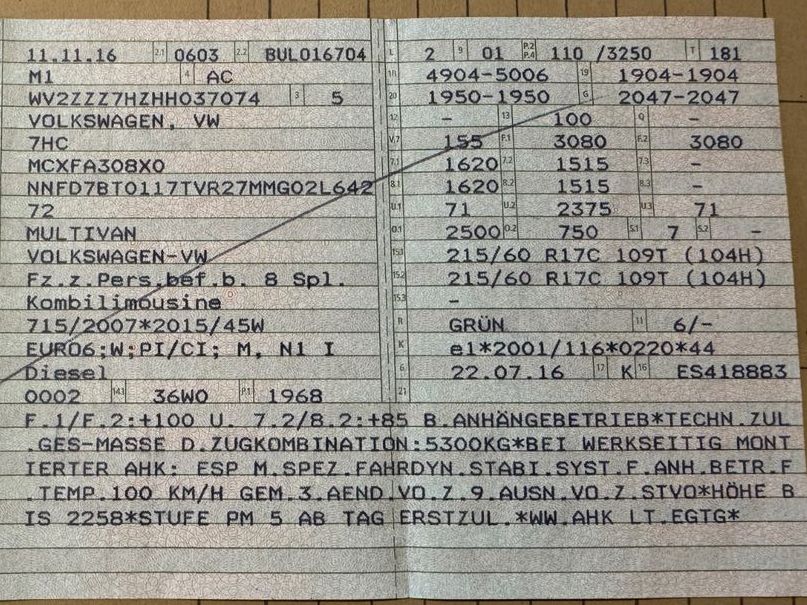 11.11.16 2.1 0603 2.2 BUL016704
M1 4 AC
WV2ZZZ7HZHH037074 3 5
VOLKSWAGEN, VW
7HC
MCXFA308X0
NNFD7BT0117TVR27MMG02L642
72
MULTIVAN
VOLKSWAGEN-VW
Fz.z.Pers.bef.b. 8 Spl.
Kombilimousine
715/2007*2015/45W
EURO6;W;PI/CI; M, N1 I
Diesel
0002 14.1 36W0 P.1 1968
L 2 9 01 P.2 P.4 110 /3250 T 181
18 4904-5006 19 1904-1904
20 1950-1950 G 2047-2047
12 - 13 100 Q -
V.7 155 F.1 3080 F.2 3080
7.1 1620 7.2 1515 7.3 -
8.1 1620 8.2 1515 8.3 -
U.1 71 U.2 2375 U.3 71
O.1 2500 O.2 750 S.1 7 S.2 -
15.1 215/60 R17C 109T (104H)
15.2 215/60 R17C 109T (104H)
15.3 -
R GRÜN 11 6/-
K e1*2001/116*0220*44
6 22.07.16 17 K 16 ES418883
21
F.1/F.2:+100 U. 7.2/8.2:+85 B.ANHÄNGEBETRIEB*TECHN.ZUL
.GES-MASSE D.ZUGKOMBINATION:5300KG*BEI WERKSEITIG MONT
IERTER AHK: ESP M.SPEZ.FAHRDYN.STABI.SYST.F.ANH.BETR.F
.TEMP.100 KM/H GEM.3.AEND.VO.Z.9.AUSN.VO.Z.STVO*HÖHE B
IS 2258*STUFE PM 5 AB TAG ERSTZUL.*WW.AHK LT.EGTG*